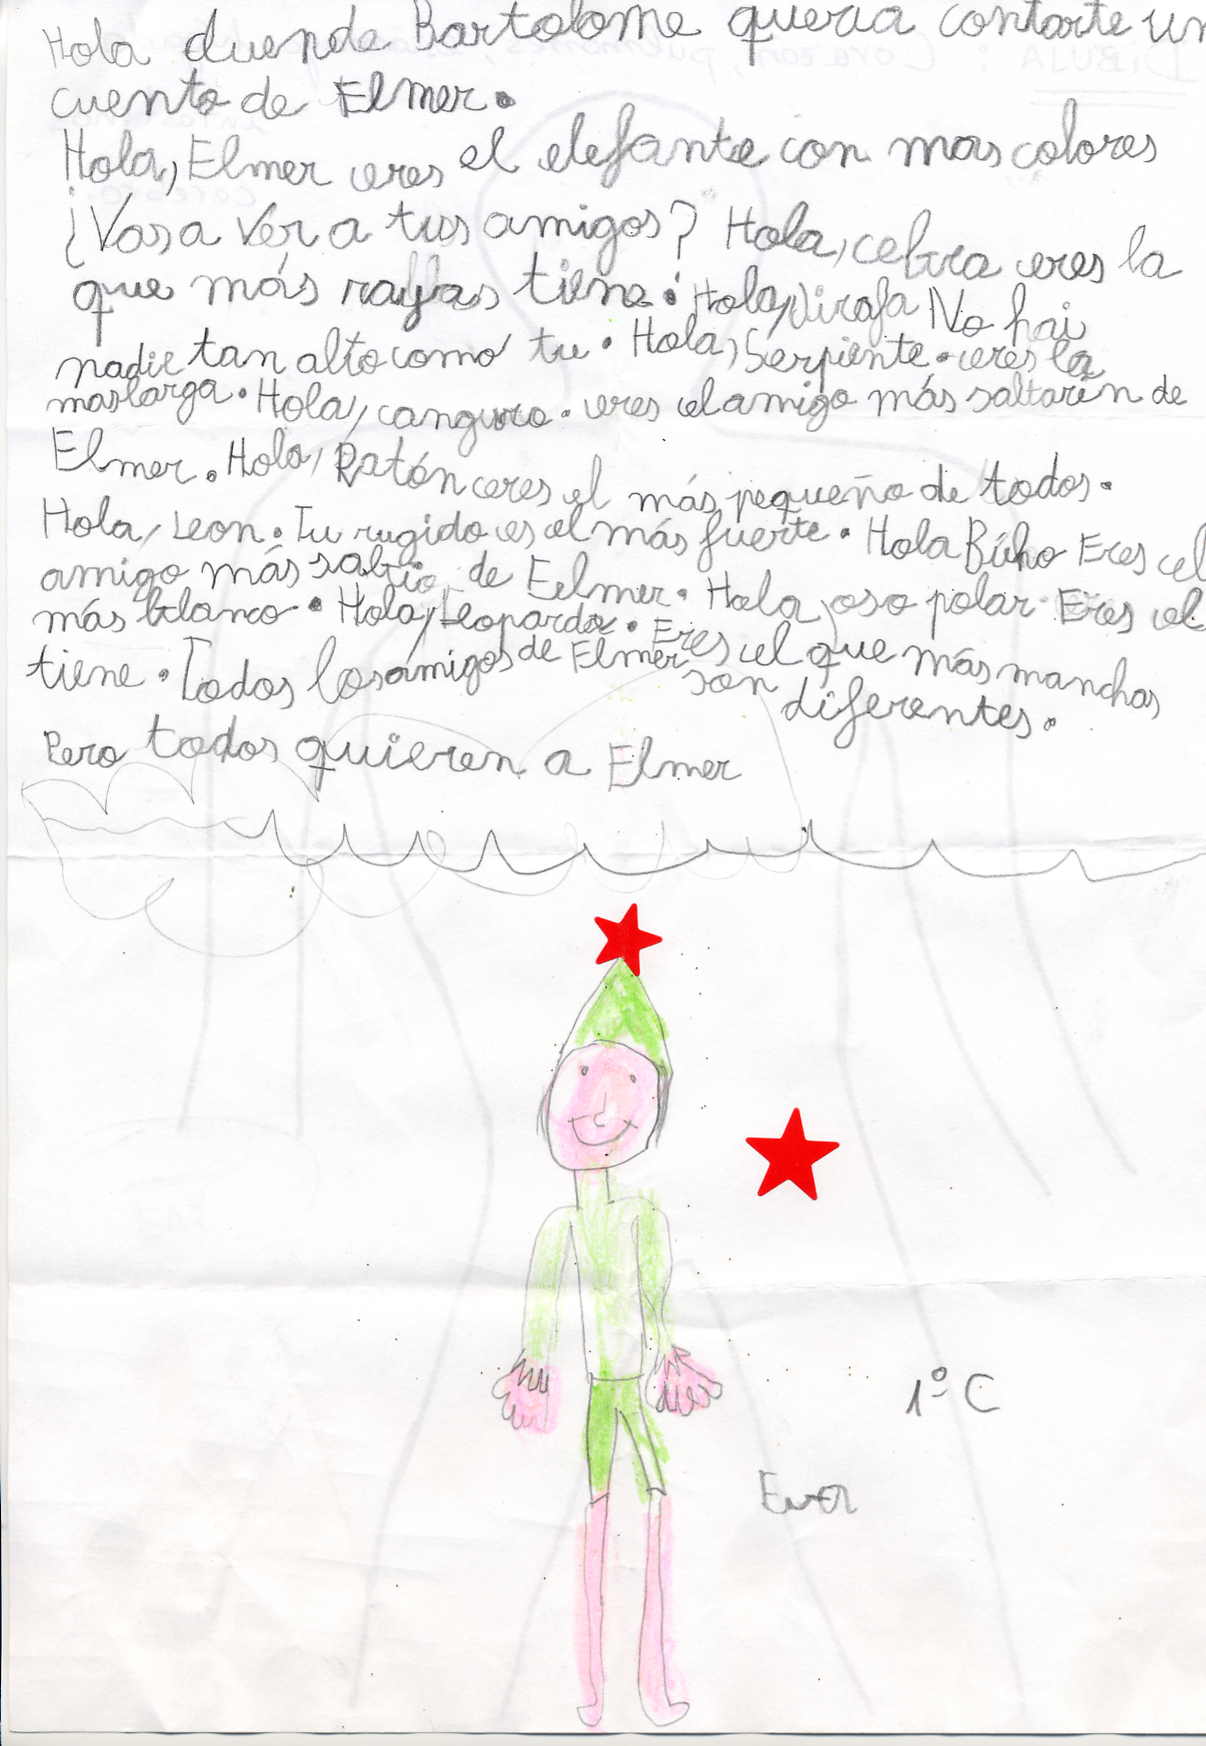 Hola duende Bartolome queria contarte un
cuento de Elmer.
Hola, Elmer eres el elefante con mas colores
¿Vas a ver a tus amigos? Hola, cebra eres la
que más rayas tiene. Hola, Jirafa No hai
nadie tan alto como tu. Hola, Serpiente. eres la
mas larga. Hola, canguro. eres el amigo más saltarín de
Elmer. Hola, Ratón eres el más pequeño de todos.
Hola, Leon. Tu rugido es el más fuerte. Hola Búho Eres el
amigo más sabio de Eelmer. Hola, oso polar. Eres el
más blanco. Hola, Leopardo. Eres el que más manchas
tiene. Todos los amigos de Elmer son diferentes.
Pero todos quieren a Elmer
1º C
DIBUJA: Corazon, pulmones,